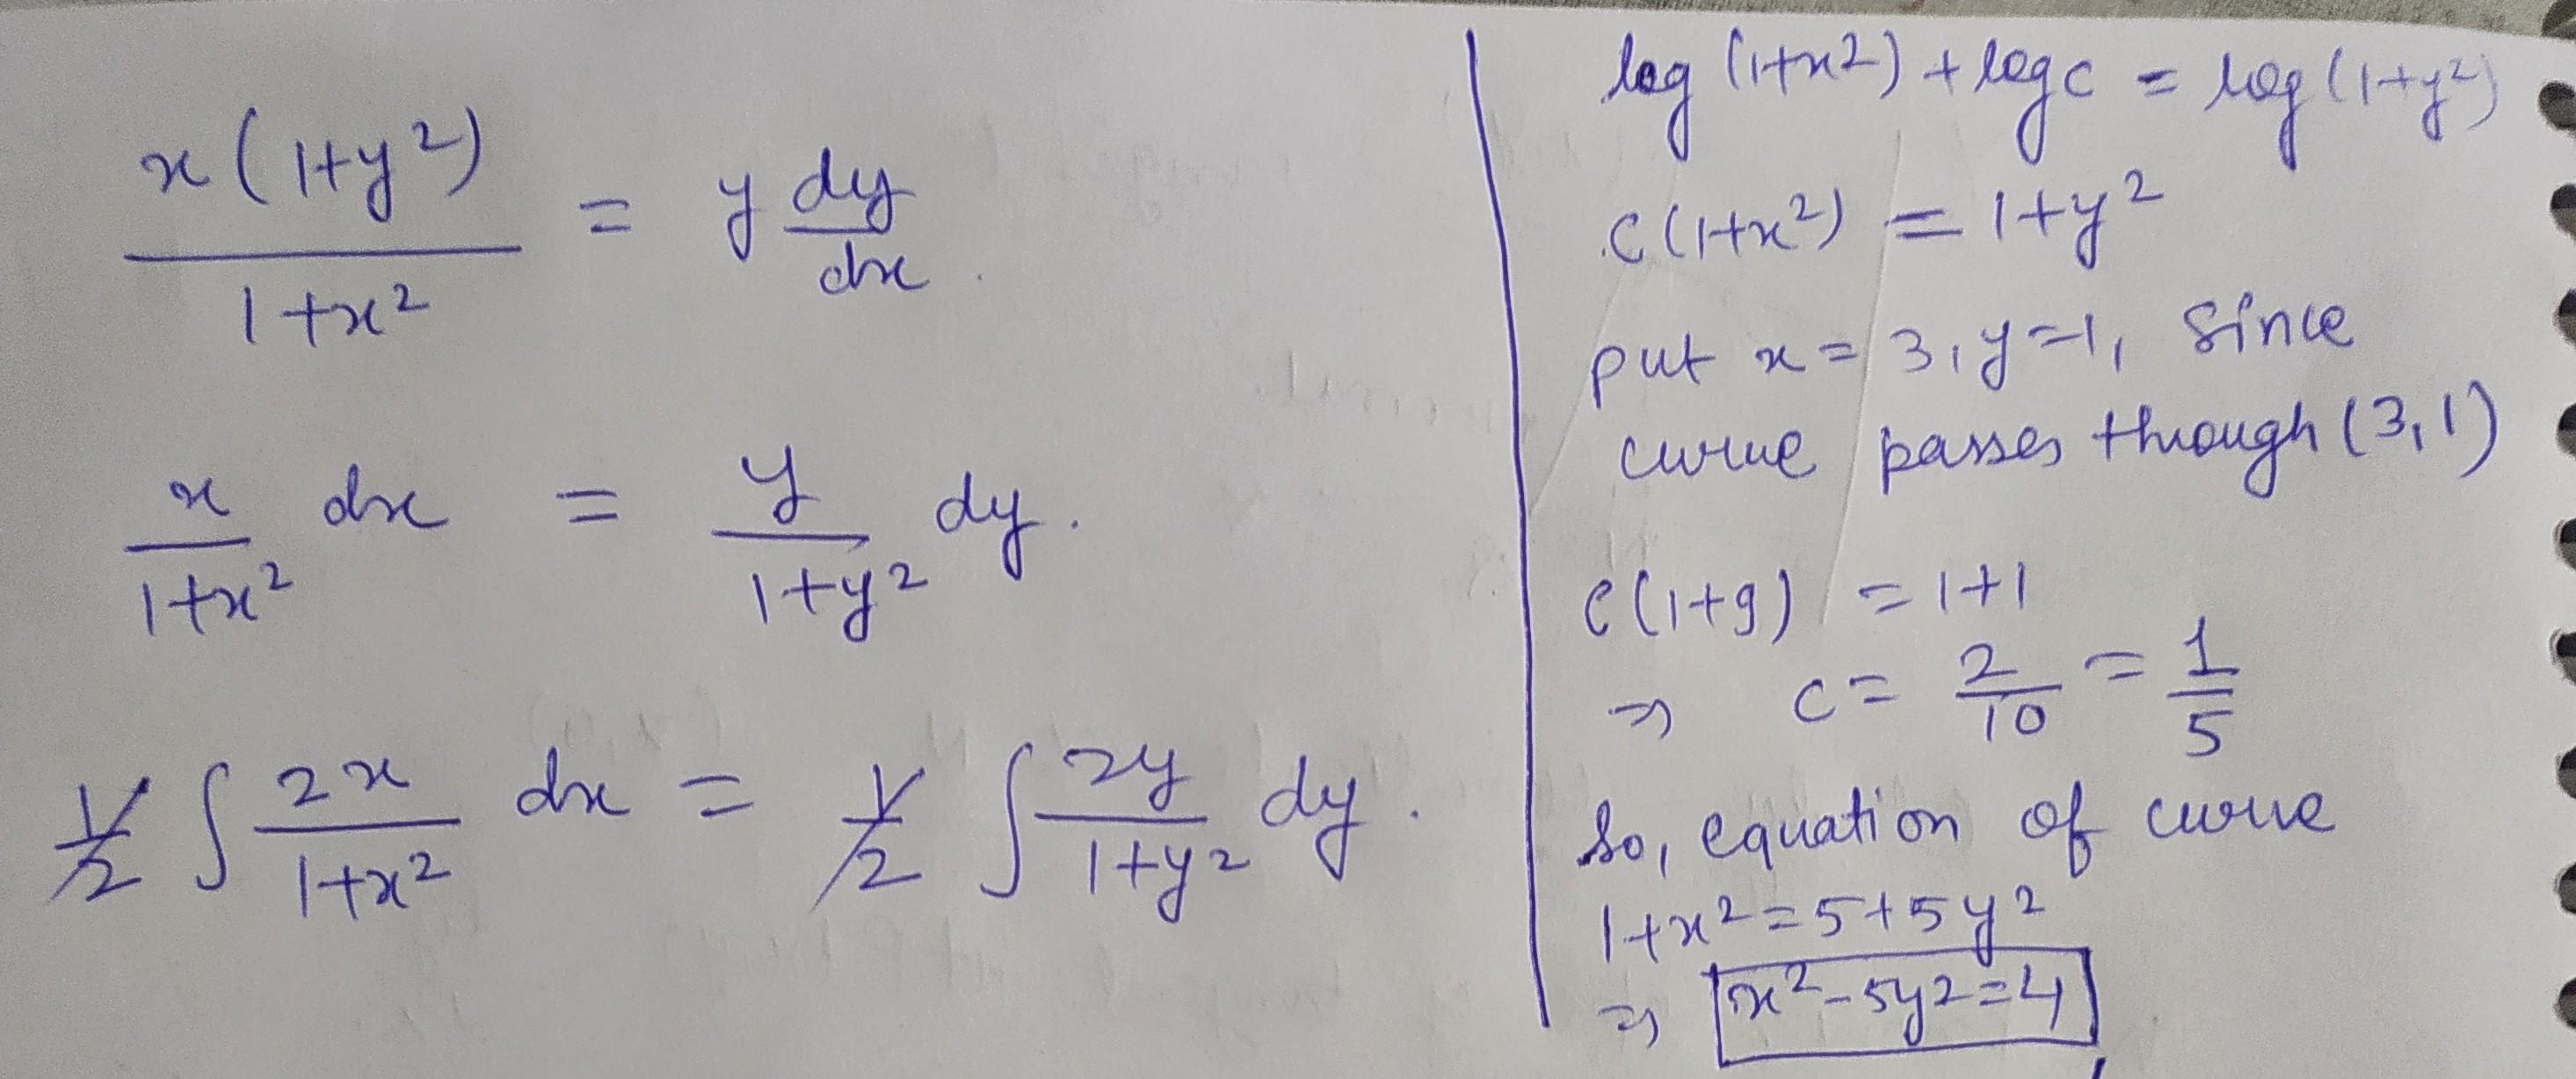 x(1+y²)/1+x² = y dy/dx.
x/1+x² dx = y/1+y² dy.
1/2 ∫ 2x/1+x² dx = 1/2 ∫ 2y/1+y² dy.
log (1+x²) + log c = log (1+y²)
C(1+x²) = 1+y²
put x = 3, y=1, since
curve passes through (3,1)
C(1+9) = 1+1
⇒ C = 2/10 = 1/5
So, equation of curve
1+x² = 5+5y²
⇒ x²-5y²=4